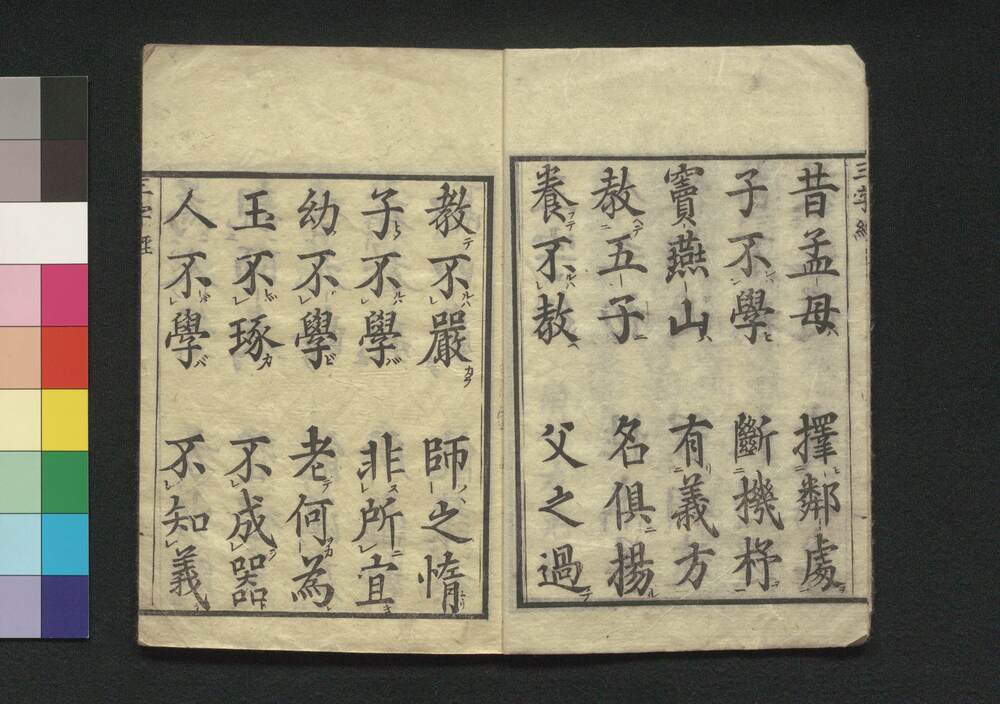 三字經
昔孟母 擇鄰處
子不學 斷機杼
竇燕山 有義方
敎五子 名俱揚
養不敎 父之過
教不嚴 師之惰
子不學 非所宜
幼不學 老何為
玉不琢 不成器
人不學 不知義
三字經